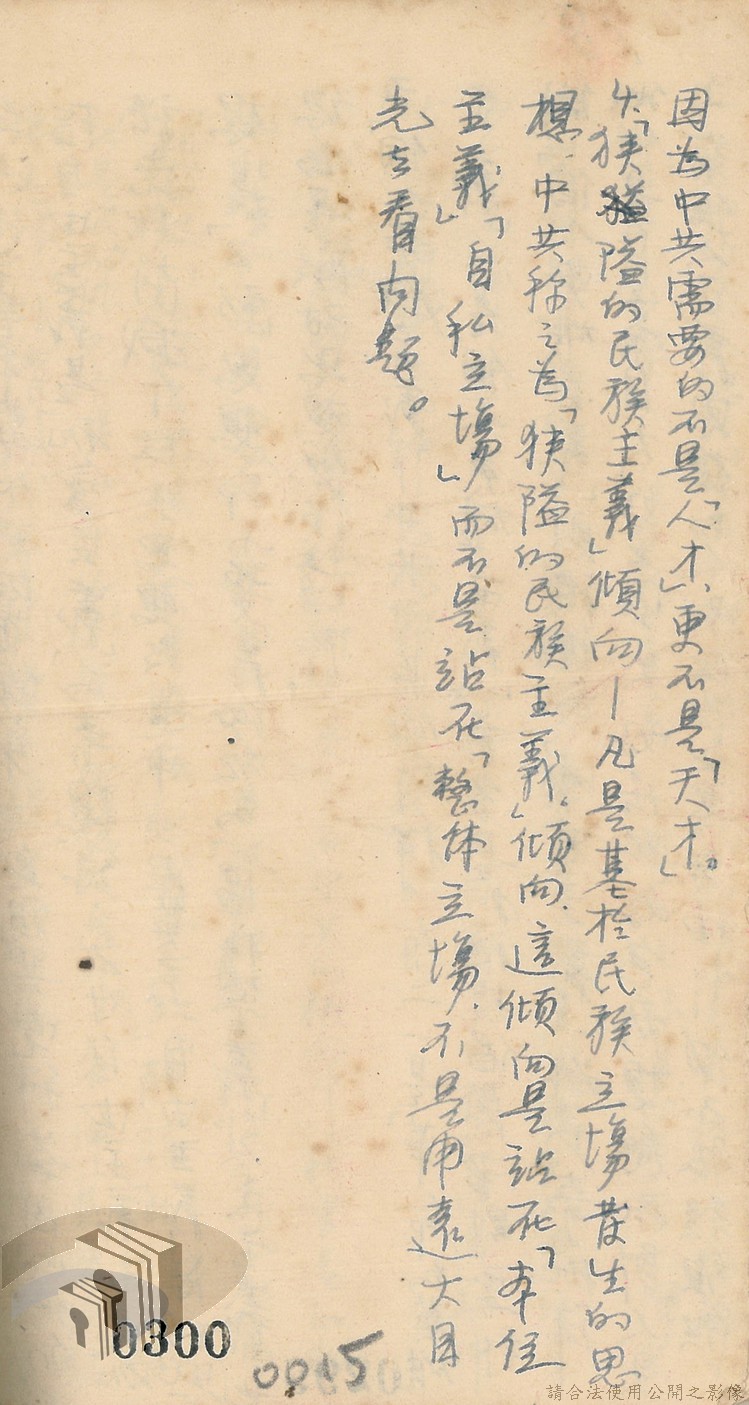 因為中共需要的不是「人才」、更不是「天才」。
4.「狹隘的民族主義」傾向—凡是基於民族立場發生的思
想、中共稱之為「狹隘的民族主義」傾向、這傾向是站在「本位
主義」「自私立場」而不是站在「整体立場、不是用遠大目
光去看问題。
0300
0015
請合法使用公開之影像